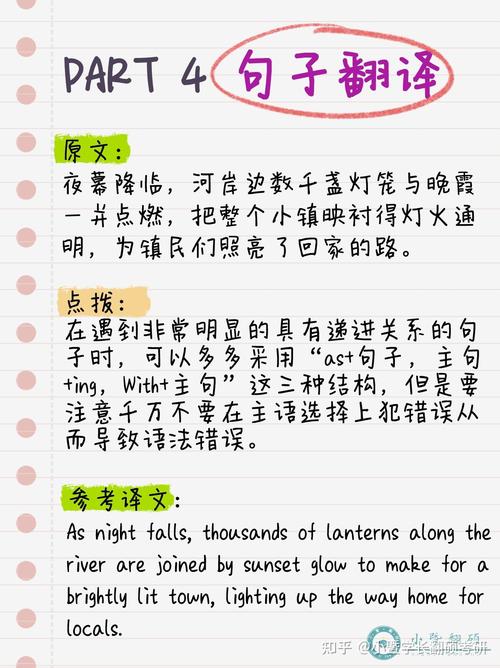 PART 4 句子翻译
原文：
夜幕降临，河岸边数千盏灯笼与晚霞
一并点燃，把整个小镇映衬得灯火通
明，为镇民们照亮了回家的路。
点拨：
在遇到非常明显的具有递进关系的句
子时，可以多多采用“as+句子，主句
+ing，With+主句”这三种结构，但是要
注意千万不要在主语选择上犯错误从
而导致语法错误。
参考译文：
As night falls, thousands of lanterns along the
river are joined by sunset glow to make for a
brightly lit town, lighting up the way home for
locals.
小隆翻硕